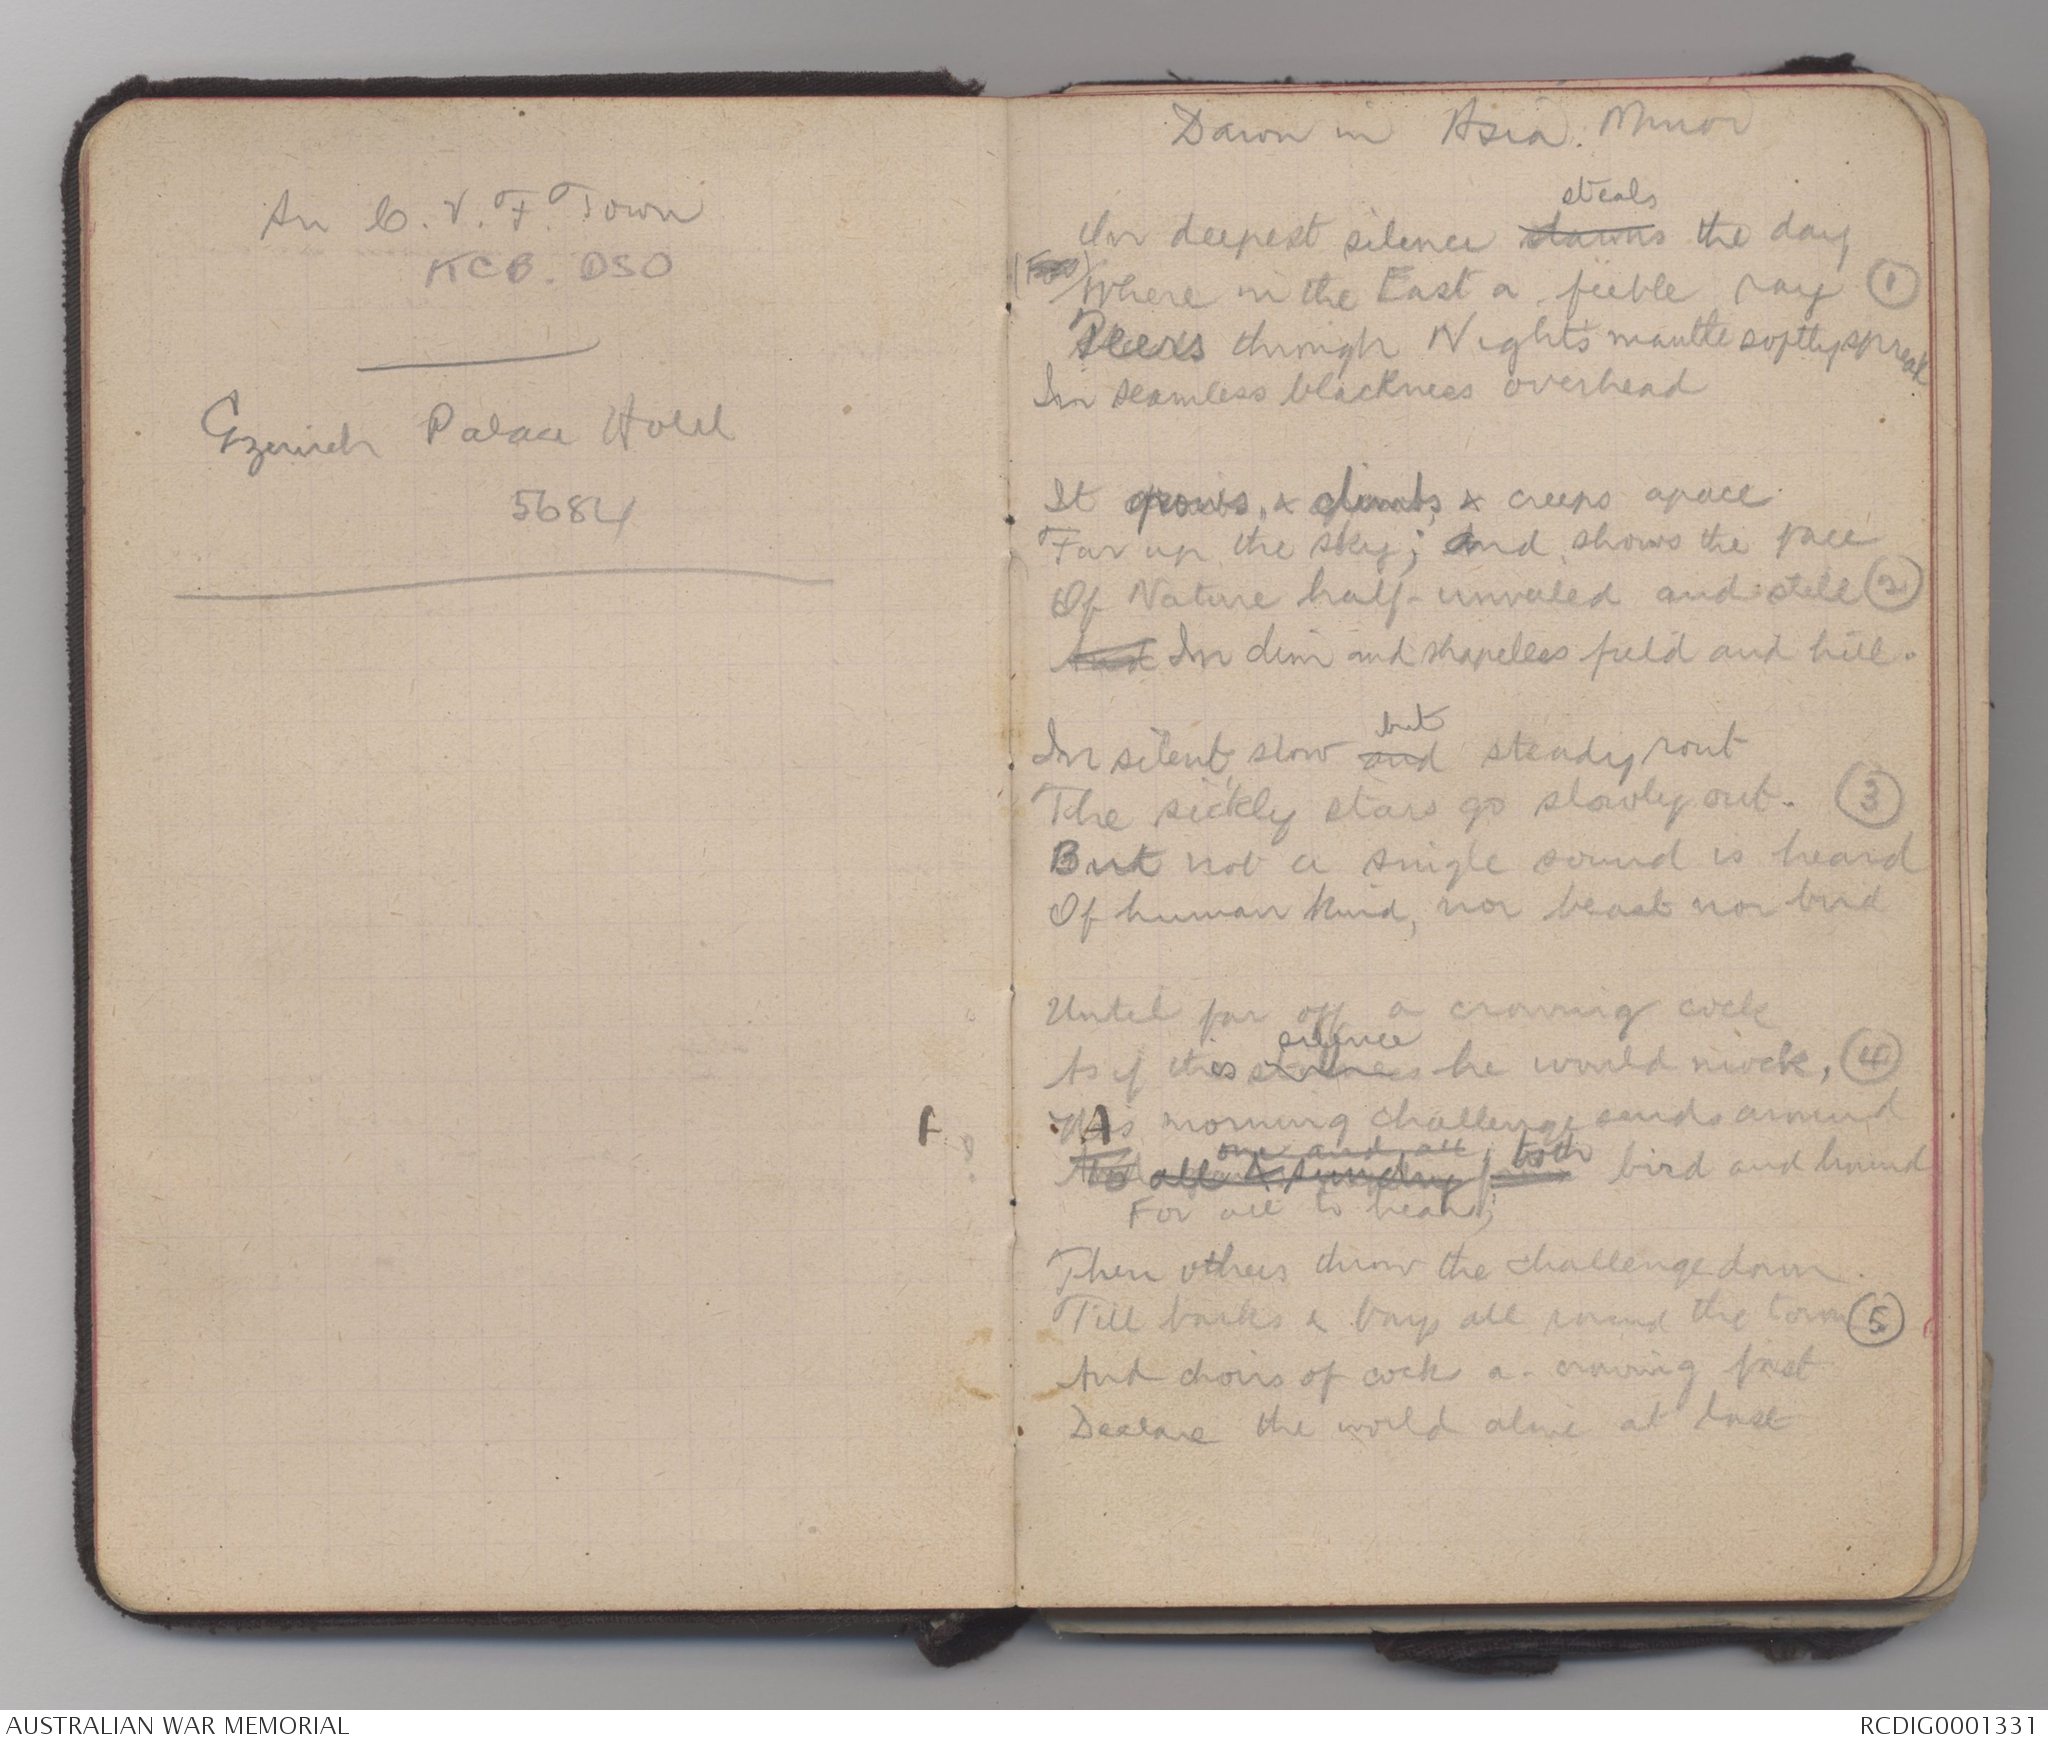 C. V. F. Town
KCB. DSO
Gzerich Palace Hotel
5684
Dawn in Asia Minor
steals
In deepest silence dawns the day
Where in the East a feeble ray 1
Peers through Night's mantle softly spread
In seamless blackness overhead
It grows, & climbs, & creeps apace
Far up the sky; And shows the face
Of Nature half-unveiled and still 2
And In dim and shapeless field and hill.
but
In silent, slow and steady rout
The sickly stars go slowly out. 3
But not a single sound is heard
Of human kind, nor beast nor bird
Until far off a crowing cock
silence
As if this stillness he would mock, 4
A
His morning challenge sends around
one and all, both
To all & sundry bird and hound
For all to hear;
Then others throw the challenge down
Till barks & bays all round the town 5
And choirs of cocks a-crowing fast
Declare the world alive at last
AUSTRALIAN WAR MEMORIAL
RCDIG0001331